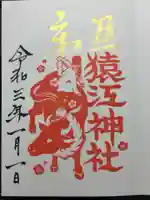 猿江神社
令和三年一月一日